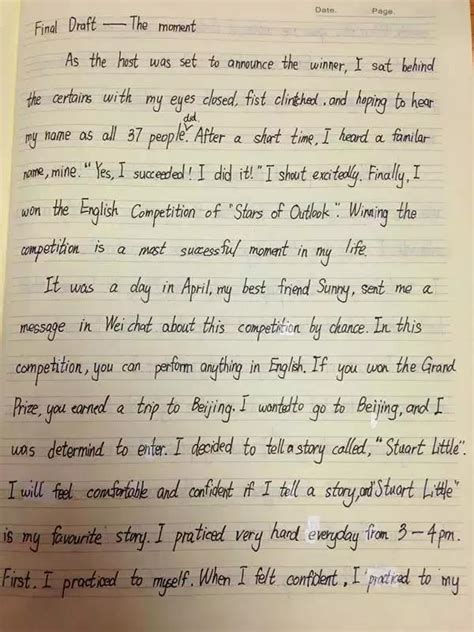 Date. Page.
Final Draft — The moment
As the host was set to announce the winner, I sat behind
the certains with my eyes closed, fist clinched, and hoping to hear
my name as all 37 people did. After a short time, I heard a familar
name, mine. "Yes, I succeeded! I did it!" I shout excitedly. Finally, I
won the English Competition of "Stars of Outlook". Winning the
competition is a most successful moment in my life.
It was a day in April, my best friend Sunny, sent me a
message in Wei chat about this competition by chance. In this
competition, you can perform anything in English. If you won the Grand
Prize, you earned a trip to Beijing. I wanted to go to Beijing, and I
was determind to enter. I decided to tell a story called, "Stuart Little".
I will feel comfortable and confident if I tell a story, and "Stuart Little"
is my favourite story. I praticed very hard everyday from 3-4 pm.
First. I practiced to myself. When I felt confident, I practiced to my